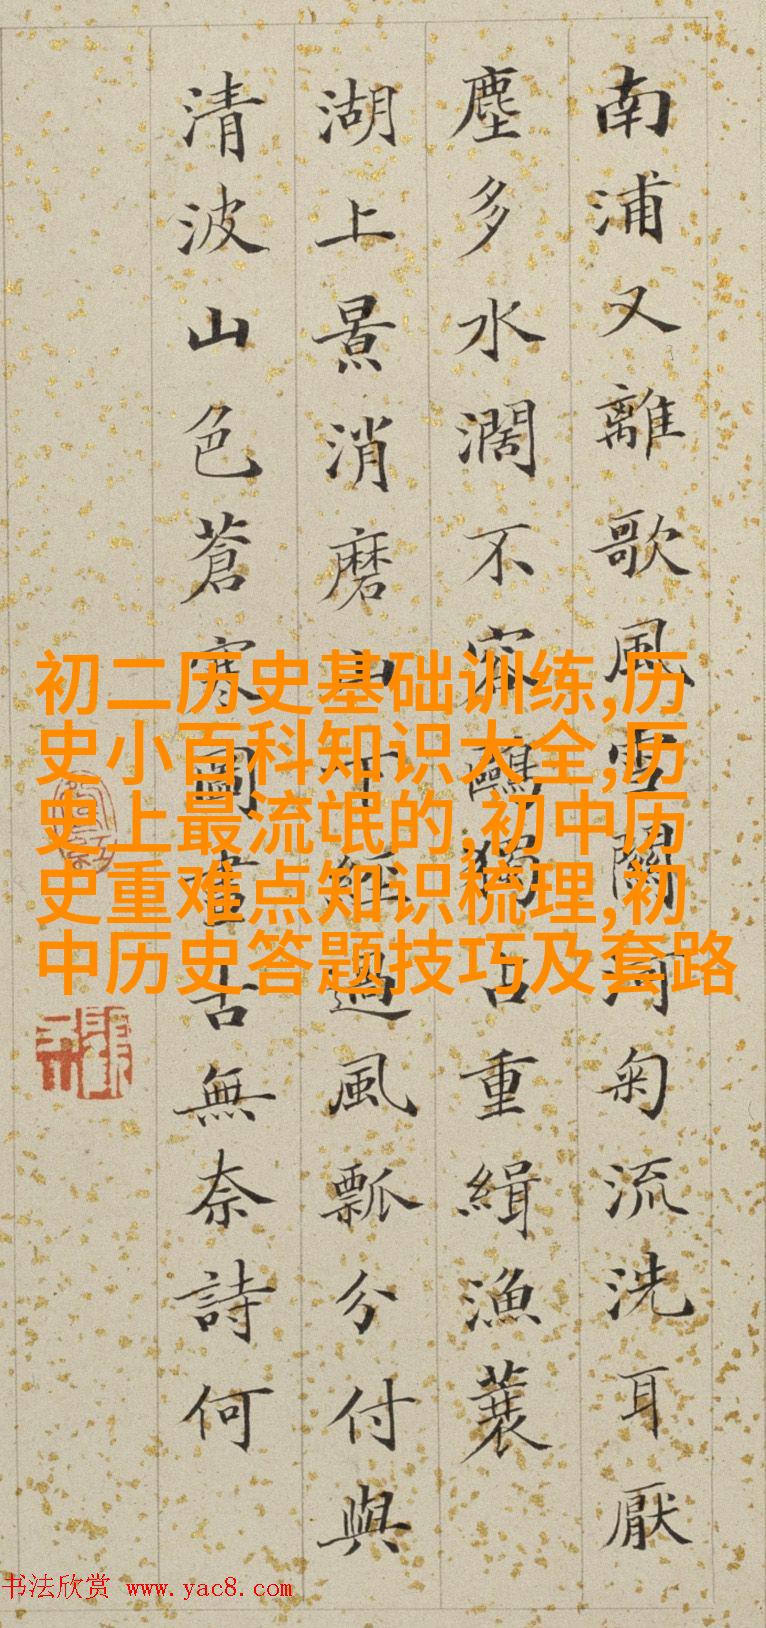 南浦又離歌風雪關河匊流洗耳厭
塵多水濶不容鷗獨占重緝漁蓑
湖上景消磨經過風瓢分付與
清波山色蒼寒圖畫古無奈詩何
初二历史基础训练,历
史小百科知识大全,历
史上最流氓的,初中历
史重难点知识梳理,初
中历史答题技巧及套路
书法欣赏 www.yac8.com